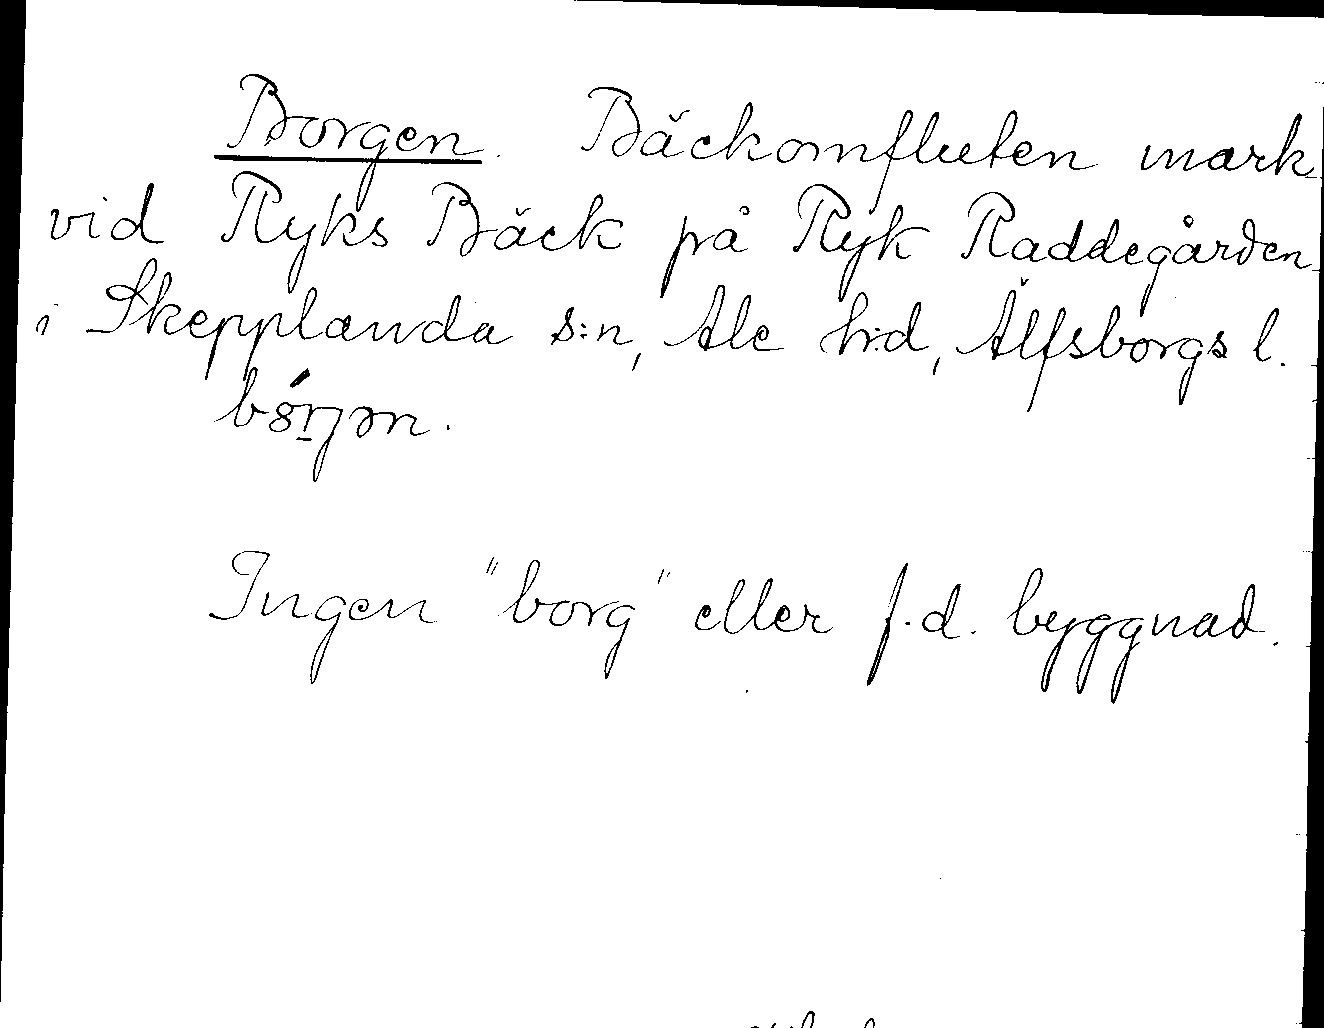 Borgen. Bäckomfluten mark
vid Ryks Bäck på Ryk Raddegården
i Skepplanda s:n, Ale h:d, Älfsborgs l.
Ingen "borg" eller f.d. byggnad.